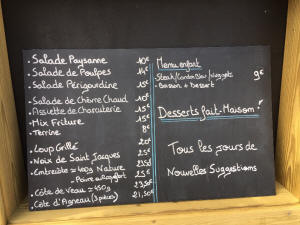 • Salade Paysanne 10€
• Salade de Poulpes 14€
• Salade Périgourdine 15€
• Salade de Chèvre Chaud 10€
• Assiette de Charcuterie 15€
• Mix Friture 15€
• Terrine 8€
• Loup Grillé 20€
• Noix de Saint Jacques 25€
• Entrecôte ≃ 400g Nature 23,50€
- Poivre ou Roquefort 25€
• Côte de Veau ≃ 450g 23,50€
• Côte d'Agneau (3 pièces) 21,50€
Menu enfant
Steak/Cordon Bleu/Nuggets 9€
- Boisson + Dessert
Desserts fait-Maison!
Tous les jours de
Nouvelles Suggestions